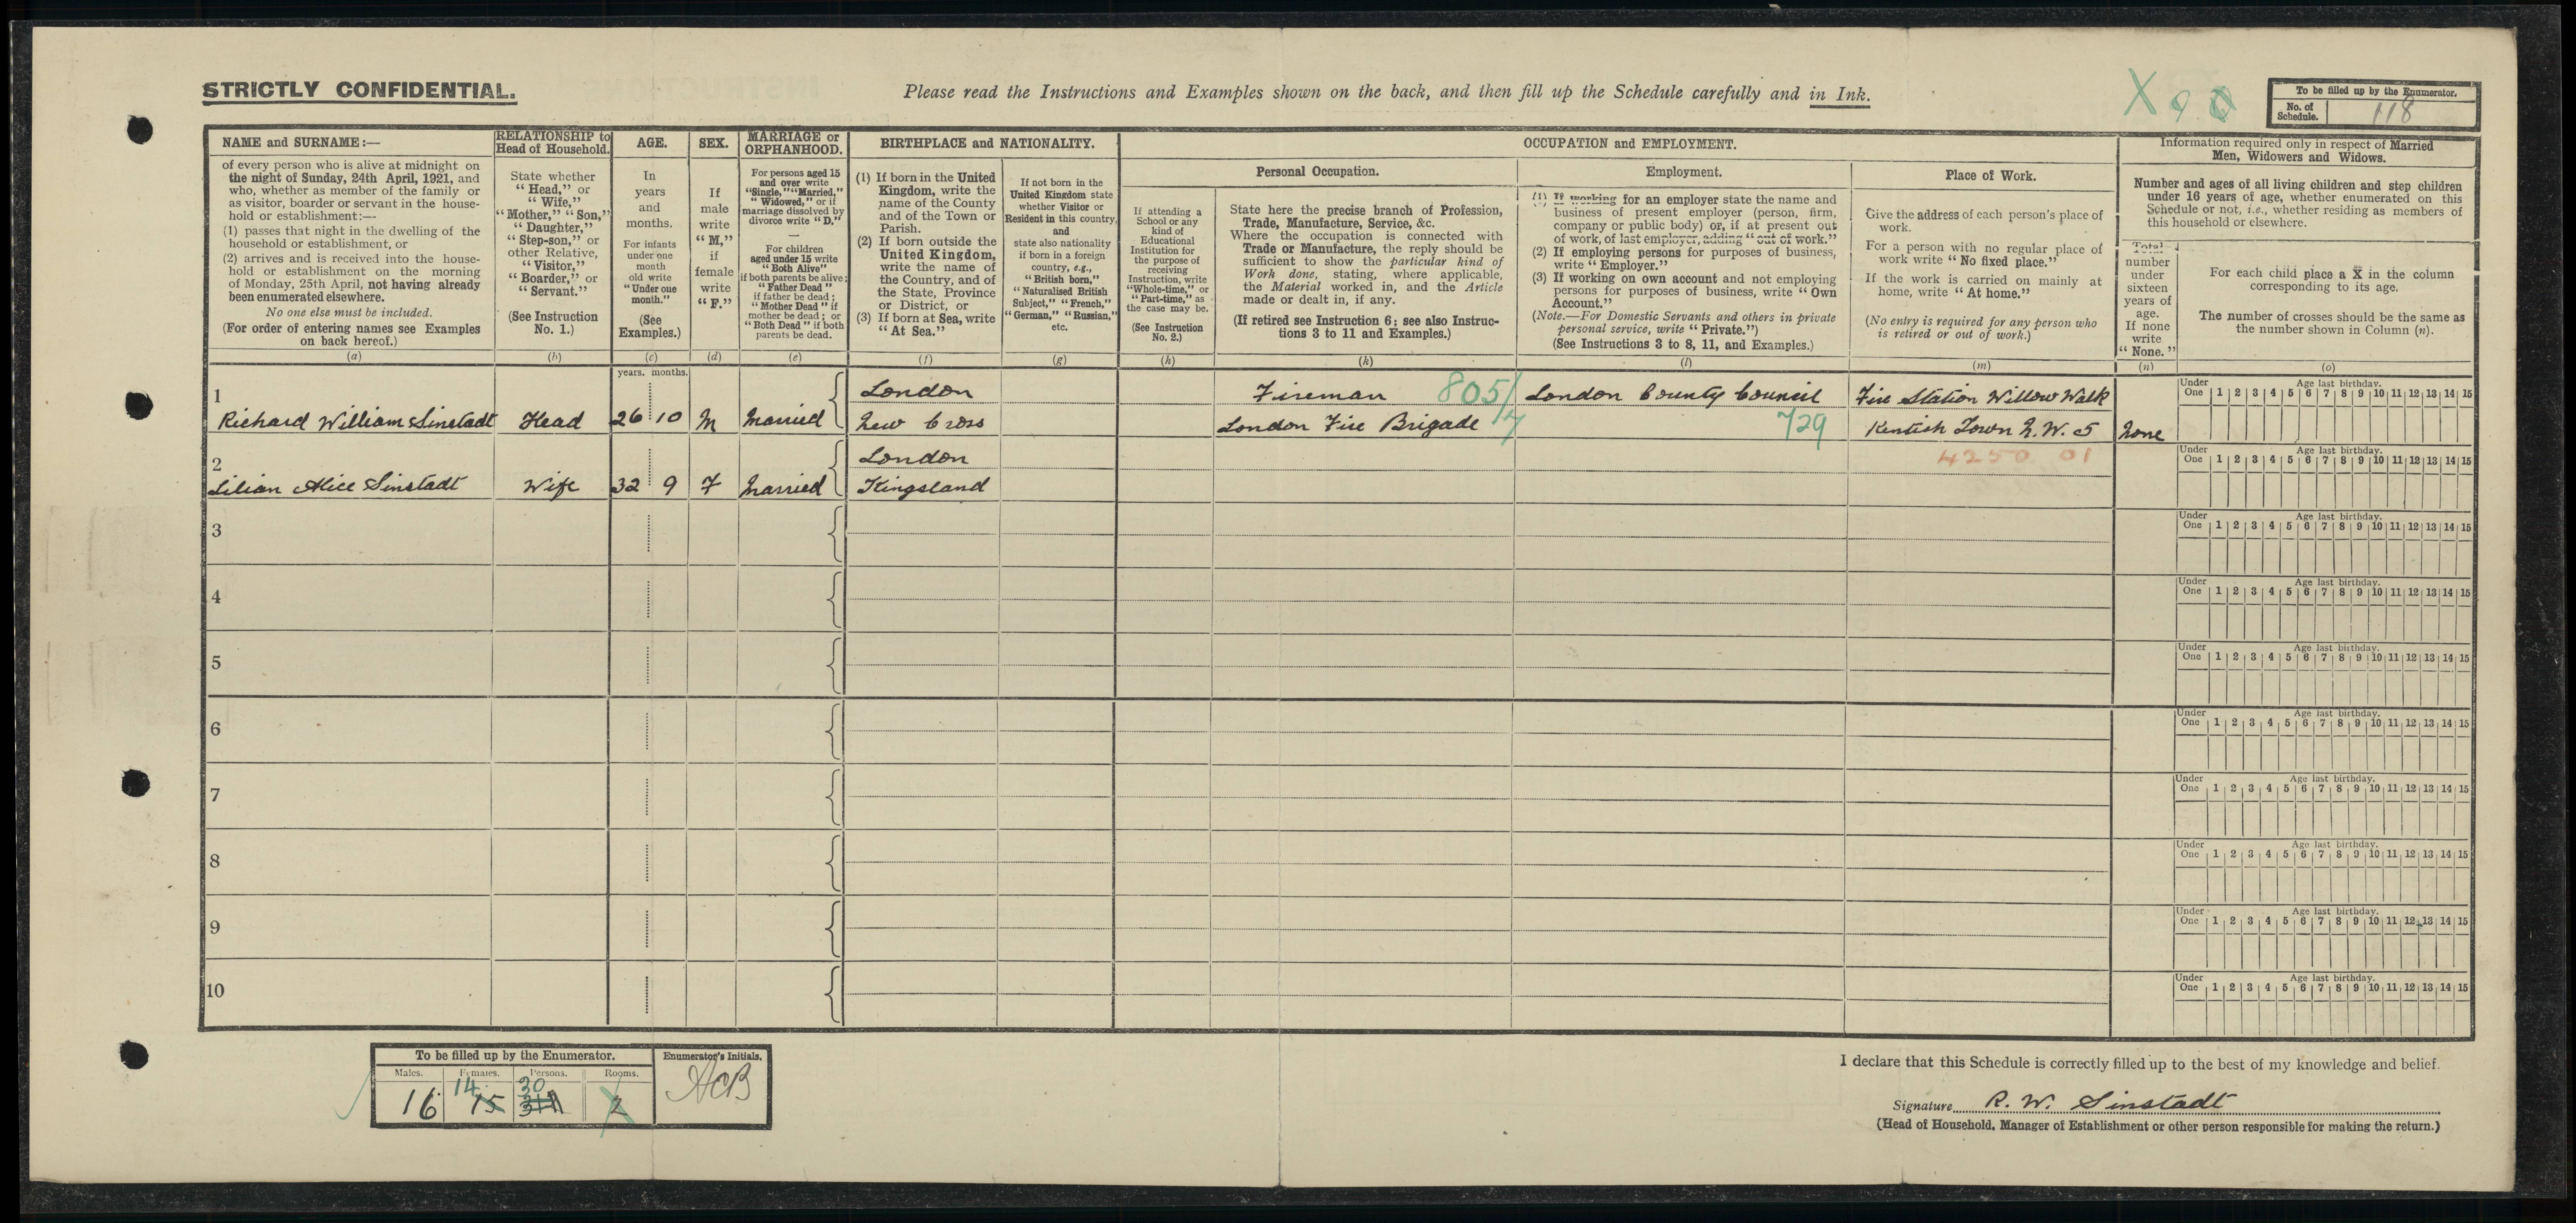 STRICTLY CONFIDENTIAL.
Please read the Instructions and Examples shown on the back, and then fill up the Schedule carefully and in Ink.
X 9
To be filled up by the Enumerator.
No. of Schedule. 118
NAME and SURNAME:—
of every person who is alive at midnight on
the night of Sunday, 24th April, 1921, and
who, whether as member of the family or
as visitor, boarder or servant in the house-
hold or establishment:—
(1) passes that night in the dwelling of the
household or establishment, or
(2) arrives and is received into the house-
hold or establishment on the morning
of Monday, 25th April, not having already
been enumerated elsewhere.
No one else must be included.
(For order of entering names see Examples
on back hereof.)
(a)
RELATIONSHIP to
Head of Household.
State whether
"Head," or
"Wife,"
"Mother," "Son,"
"Daughter,"
"Step-son," or
other Relative,
"Visitor,"
"Boarder," or
"Servant."
(See Instruction
No. 1.)
(b)
AGE.
In
years
and
months.
For infants
under one
month
old write
"Under one
month."
(See
Examples.)
(c)
SEX.
If
male
write
"M,"
if
female
write
"F."
(d)
MARRIAGE or
ORPHANHOOD.
For persons aged 15
and over write
"Single," "Married,"
"Widowed," or if
marriage dissolved by
divorce write "D."
—
For children
aged under 15 write
"Both Alive"
if both parents be alive;
"Father Dead"
if father be dead;
"Mother Dead" if
mother be dead; or
"Both Dead" if both
parents be dead.
(e)
BIRTHPLACE and NATIONALITY.
(1) If born in the United
Kingdom, write the
name of the County
and of the Town or
Parish.
(2) If born outside the
United Kingdom,
write the name of
the Country, and of
the State, Province
or District, or
(3) If born at Sea, write
"At Sea."
(f)
If not born in the
United Kingdom state
whether Visitor or
Resident in this country,
and
state also nationality
if born in a foreign
country, e.g.,
"British born,"
"Naturalised British
Subject," "French,"
"German," "Russian,"
etc.
(g)
OCCUPATION and EMPLOYMENT.
If attending a
School or any
kind of
Educational
Institution for
the purpose of
receiving
Instruction, write
"Whole-time," or
"Part-time," as
the case may be.
(See Instruction
No. 2.)
(h)
Personal Occupation.
State here the precise branch of Profession,
Trade, Manufacture, Service, &c.
Where the occupation is connected with
Trade or Manufacture, the reply should be
sufficient to show the particular kind of
Work done, stating, where applicable,
the Material worked in, and the Article
made or dealt in, if any.
(If retired see Instruction 6; see also Instruc-
tions 3 to 11 and Examples.)
(k)
Employment.
(1) If working for an employer state the name and
business of present employer (person, firm,
company or public body) or, if at present out
of work, of last employer, adding "out of work."
(2) If employing persons for purposes of business,
write "Employer."
(3) If working on own account and not employing
persons for purposes of business, write "Own
Account."
(Note.—For Domestic Servants and others in private
personal service, write "Private.")
(See Instructions 3 to 8, 11, and Examples.)
(l)
Place of Work.
Give the address of each person's place of
work.
For a person with no regular place of
work write "No fixed place."
If the work is carried on mainly at
home, write "At home."
(No entry is required for any person who
is retired or out of work.)
(m)
Information required only in respect of Married
Men, Widowers and Widows.
Number and ages of all living children and step children
under 16 years of age, whether enumerated on this
Schedule or not, i.e., whether residing as members of
this household or elsewhere.
Total
number
under
sixteen
years of
age.
If none
write
"None."
(n)
For each child place a X in the column
corresponding to its age.
The number of crosses should be the same as
the number shown in Column (n).
(o)
years. months.
1
Richard William Sinstadt Head 26 10 M Married London New Cross
Fireman 805/7
London Fire Brigade
London County Council
729
Fire Station Willow Walk
Kentish Town N.W. 5
None
4250 01
Under One Age last birthday. 1 2 3 4 5 6 7 8 9 10 11 12 13 14 15
2
Lilian Alice Sinstadt Wife 32 9 F Married London Kingsland
Under One Age last birthday. 1 2 3 4 5 6 7 8 9 10 11 12 13 14 15
3
Under One Age last birthday. 1 2 3 4 5 6 7 8 9 10 11 12 13 14 15
4
Under One Age last birthday. 1 2 3 4 5 6 7 8 9 10 11 12 13 14 15
5
Under One Age last birthday. 1 2 3 4 5 6 7 8 9 10 11 12 13 14 15
6
Under One Age last birthday. 1 2 3 4 5 6 7 8 9 10 11 12 13 14 15
7
Under One Age last birthday. 1 2 3 4 5 6 7 8 9 10 11 12 13 14 15
8
Under One Age last birthday. 1 2 3 4 5 6 7 8 9 10 11 12 13 14 15
9
Under One Age last birthday. 1 2 3 4 5 6 7 8 9 10 11 12 13 14 15
10
Under One Age last birthday. 1 2 3 4 5 6 7 8 9 10 11 12 13 14 15
To be filled up by the Enumerator.
Males. Females. Persons. Rooms.
14 30
16 15 31 2
Enumerator's Initials.
ACB
I declare that this Schedule is correctly filled up to the best of my knowledge and belief.
Signature R. W. Sinstadt
(Head of Household, Manager of Establishment or other person responsible for making the return.)